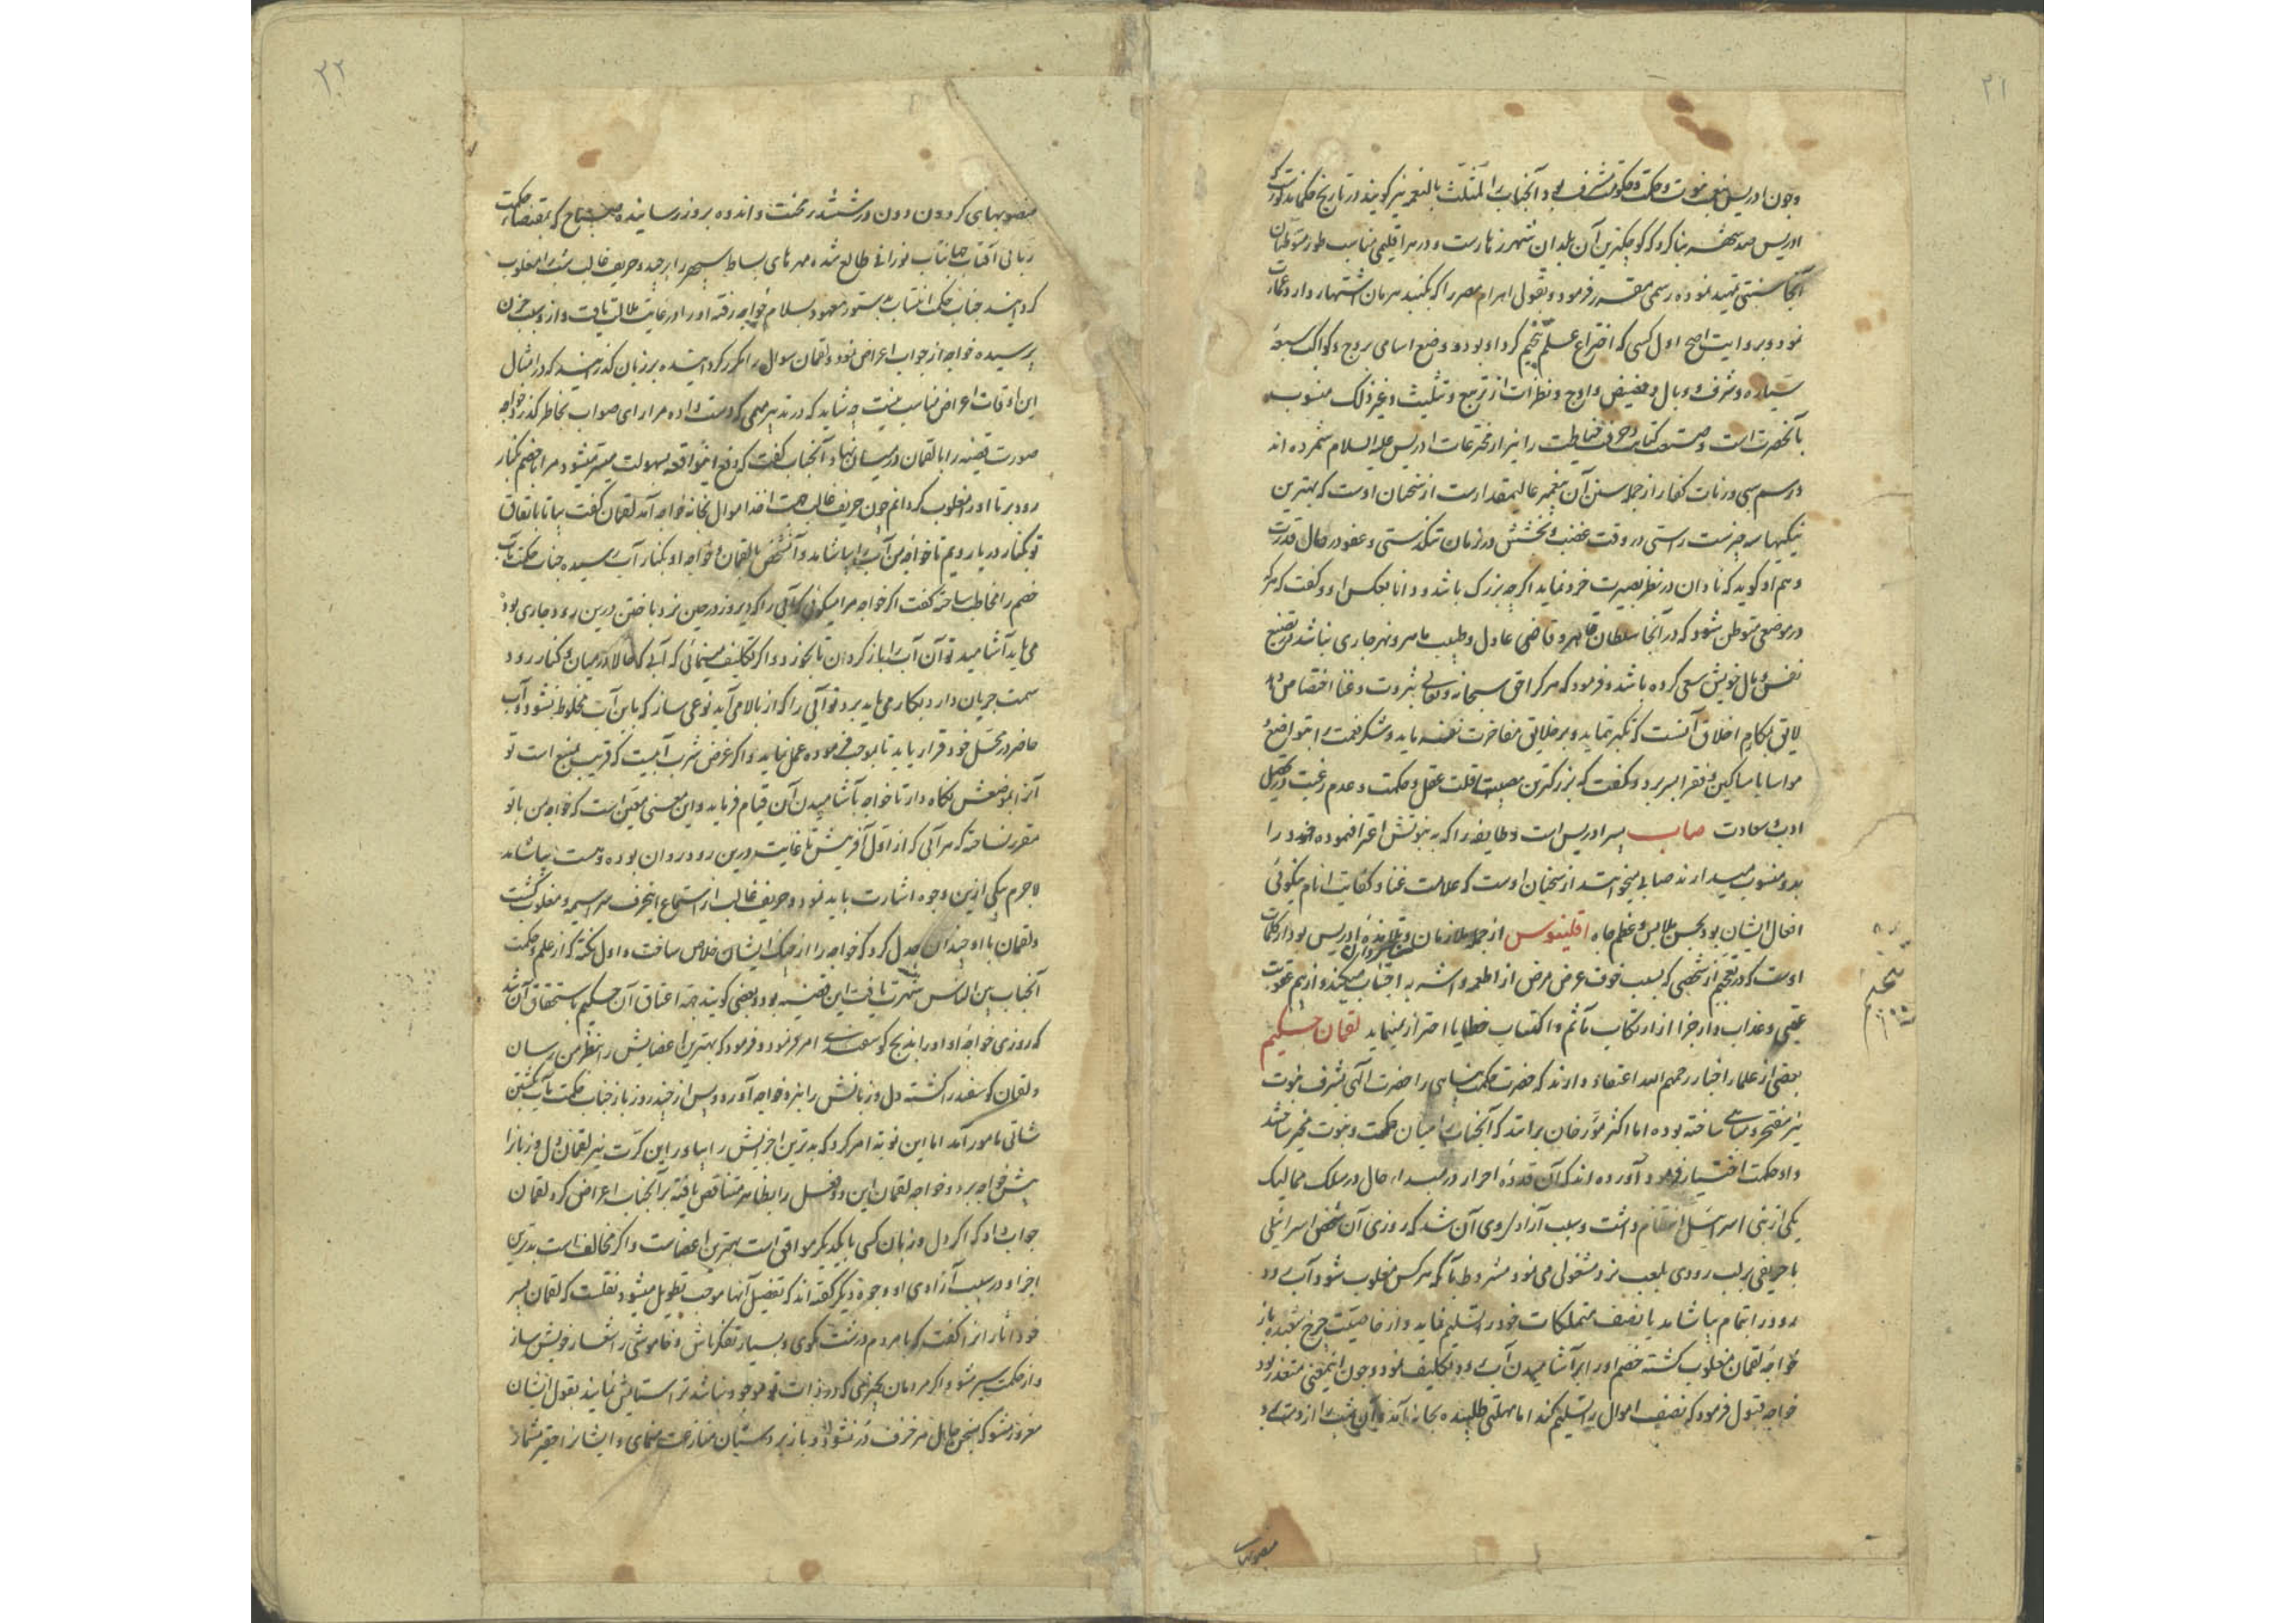 ۲۱
وچون ادریس بنعمت نبوت و حکمت و حکومت مشرف بود آنجناب را المثلث بالنعمه نیز گویند در تاریخ حکما مذکورست که
ادریس صد شهر بنا کرد که کوچکترین آن بلدان شهر رهاست و در هر اقلیمی مناسب طور متوطنان
آنجا سنتی تمهید نموده رسمی مقرر فرمود و بقول اهرام مصر را که بگنبد هرمان اشتهار دارد عمارت
نمود و بروایت اصح اول کسی که اختراع علم نجوم کرد او بود و وضع اسامی بروج و کواکب سبعهٔ
سیاره و شرف و وبال و حضیض و اوج و نظرات از تربیع و تثلیث و غیر ذلک منسوب
بآنحضرت است و صنعت کتابت و حرفت خیاطت را نیز از مخترعات ادریس علیه السلام شمرده اند
و رسم سبی و زنات کفار از جمله سنن آن پیغمبر عالیمقدارست از سخنان اوست که بهترین
نیکیها سه چیزست راستی در وقت غضب و بخشش در زمان تنگدستی و عفو در حال قدرت
و هم او گوید که نادان در نظر بصیرت خرد نماید اگرچه بزرگ باشد و دانا بعکس او و گفت که هرکه
در موضعی متوطن شود که در آنجا سلطان قاهر و قاضی عادل و طبیب ماهر و نهر جاری نباشد در تضییع
نفس و مال خویش سعی کرده باشد و فرمود که هرکرا حق سبحانه و تعالی بثروت و غنا اختصاص داد
لایق بمکارم اخلاق آنست که تکبر ننماید و بر خلایق مفاخرت نفرماید و شکر نعمت را بتواضع و
مواسا با مساکین و فقرا بسر برد و گفت که بزرگترین مصیبتها قلت عقل و حکمت و عدم رغبت در تحصیل
ادب و سعادت صاب پسر ادریس است و طایفه را که به نبوتش اعتراف نموده خود را
بدو منسوب میدارند صابی میخوانند از سخنان اوست که علامت غنا و کفایت انام نیکوئی
افعال ایشان بود بحسن ملابس و عظم جاه اقلینوس از جمله ملازمان و تلامذهٔ ادریس بود از کلمات
اوست که در تعجبم از شخصی که بسبب خوف عرض مرض از اطعمه و اشربه اجتناب میکند و از بیم عقوبت
عقبی و عذاب دار جزا از ارتکاب مآثم و اکتساب خطایا احتراز نمینماید لقمان حکیم
بعضی از علماء اخبار رحمهم الله اعتقاد دارند که حضرت حکمت پناهی را حضرت الهی بشرف نبوت
نیز مفتخر و مباهی ساخته بوده اما اکثر مؤرخان برانند که آنجناب را میان حکمت و نبوت مخیر ساختند
و او حکمت اختیار فرمود و آورده اند که آن قدوهٔ احرار در مبداء حال در سلک ممالیک
یکی از بنی اسرائیل انتظام داشت و سبب آزادی وی آن شد که روزی آن شخص اسرائیلی
با حریفی بر لب رودی بلعب نرد مشغولی می نمود مشروط بآنکه هرکس مغلوب شود آب
رود را بتمام بیاشامد یا نصف متملکات خود را تسلیم نماید و از خاصیت چرخ شعبده باز
خواجه لقمان مغلوب گشته خصم او را بر آشامیدن آب رود تکلیف نمود و چون اینمعنی متعذر بود
خواجه قبول فرمود که نصف اموال را تسلیم کند اما مهلتی طلبیده بخانه آمد و آن شب را از دست
منصوبهای
۲۲
منصوبهای گردون دون در ششدر محنت و اندوه بروز رسانیده صباح که بمقتضاء حکمت
ربانی آفتاب جهانتاب نورانی طالع شده مهرهای بساط سپهر را برچید و حریف غالب شب را مغلوب
گردانید جناب حکمت انتساب بدستور معهود بسلام خواجه رفته او را در غایت ملالت یافت و از سبب حزن
پرسیده خواجه از جواب اعراض نمود و لقمان سوال را مکرر گردانیده بر زبان گذرانید که در امثال
این اوقات اعراض مناسب نیست چه شاید که در تدبیر مهمی که دست داده مرا رای صواب بخاطر گذرد خواجه
صورت قضیه را با لقمان در میان نهاد آنجناب گفت که دفع اینواقعه بسهولت میسر میشود مرا با خصم بکنار
رود بر تا او را مغلوب گردانم چون حریف غالب جهت اخذ اموال بخانه خواجه آمد لقمان گفت بیا تا باتفاق
تو بکنار دریا رویم تا خواجه من آب را بیاشامد و آنشخص با لقمان و خواجه او بکنار آب رسیده جناب حکمت مآب
خصم را مخاطب ساخته گفت اگر خواجه مرا میگوئی که آبی را که دیروز در حین نرد باختن درین رود جاری بود
می باید آشامید تو آن آب را بازگردان تا بخورد و اگر تکلیف مینمائی که آبی که حالا در میان دو کنار رود
سمت جریان دارد بکار می باید برد تو آبی را که از بالا می آید نوعی ساز که باین آب مخلوط نشود و آب
حاضر در محل خود قرار یابد تا بموجب فرموده عمل نماید و اگر غرض شرب آبیست که قریب بمنبع است تو
آنرا بموضعش نگاه دار تا خواجه بآشامیدن آن قیام فرماید و این معنی متعین است که خواجه من با تو
مقرر نساخته که هر آبی که از اول آفرینش تا غایت درین رود روان بوده و هست بیاشامد
لاجرم بیکی ازین وجوه اشارت باید نمود و حریف غالب از استماع اینحرف سراسیمه و مغلوب گشت
و لقمان با او چندان جدل کرد که خواجه را از چنگ ایشان خلاص ساخت و اول نکته که از علم و حکمت
آنجناب بین الناس شهرت یافت این قضیه بود و بعضی گویند جهة اعتاق آن حکیم باستحقاق آن شد
که روزی خواجه او او را بذبح گوسفندی امر فرمود و فرمود که بهترین اعضایش را بنظر من رسان
و لقمان گوسفند را کشته دل و زبانش را بنزد خواجه آورد و پس از چند روز باز جناب حکمت مآب بکشتن
شاتی مامور آمد اما این نوبة امر کرد که بدترین اجزایش را بیاور این کرت نیز لقمان دل و زبانرا
پیش خواجه برد و خواجه لقمان این دو فعل را بظاهر متناقض یافته بر آنجناب اعراض کرد لقمان
جواب داد که اگر دل و زبان کسی با یکدیگر موافق است بهترین اعضاست و اگر مخالف است بدترین
اجزا و در سبب آزادی او وجوه دیگر گفته اند که تفصیل آنها موجب تطویل میشود نقلست که لقمان پسر
خود اثار انرا گفت که با مردم درشت مگوی و بسیار تفکر باش و خاموشی را شعار خویش ساز
و از حکمت سیر مشو و اگر مردمان بچیزی که در ذات تو موجود نباشد ترا ستایش نمایند بقول ایشان
مغرور مشو که بسخن جاهل هر خزف در نشود و با زبردستان منازعت منمای و ایشانرا حقیر مشمار